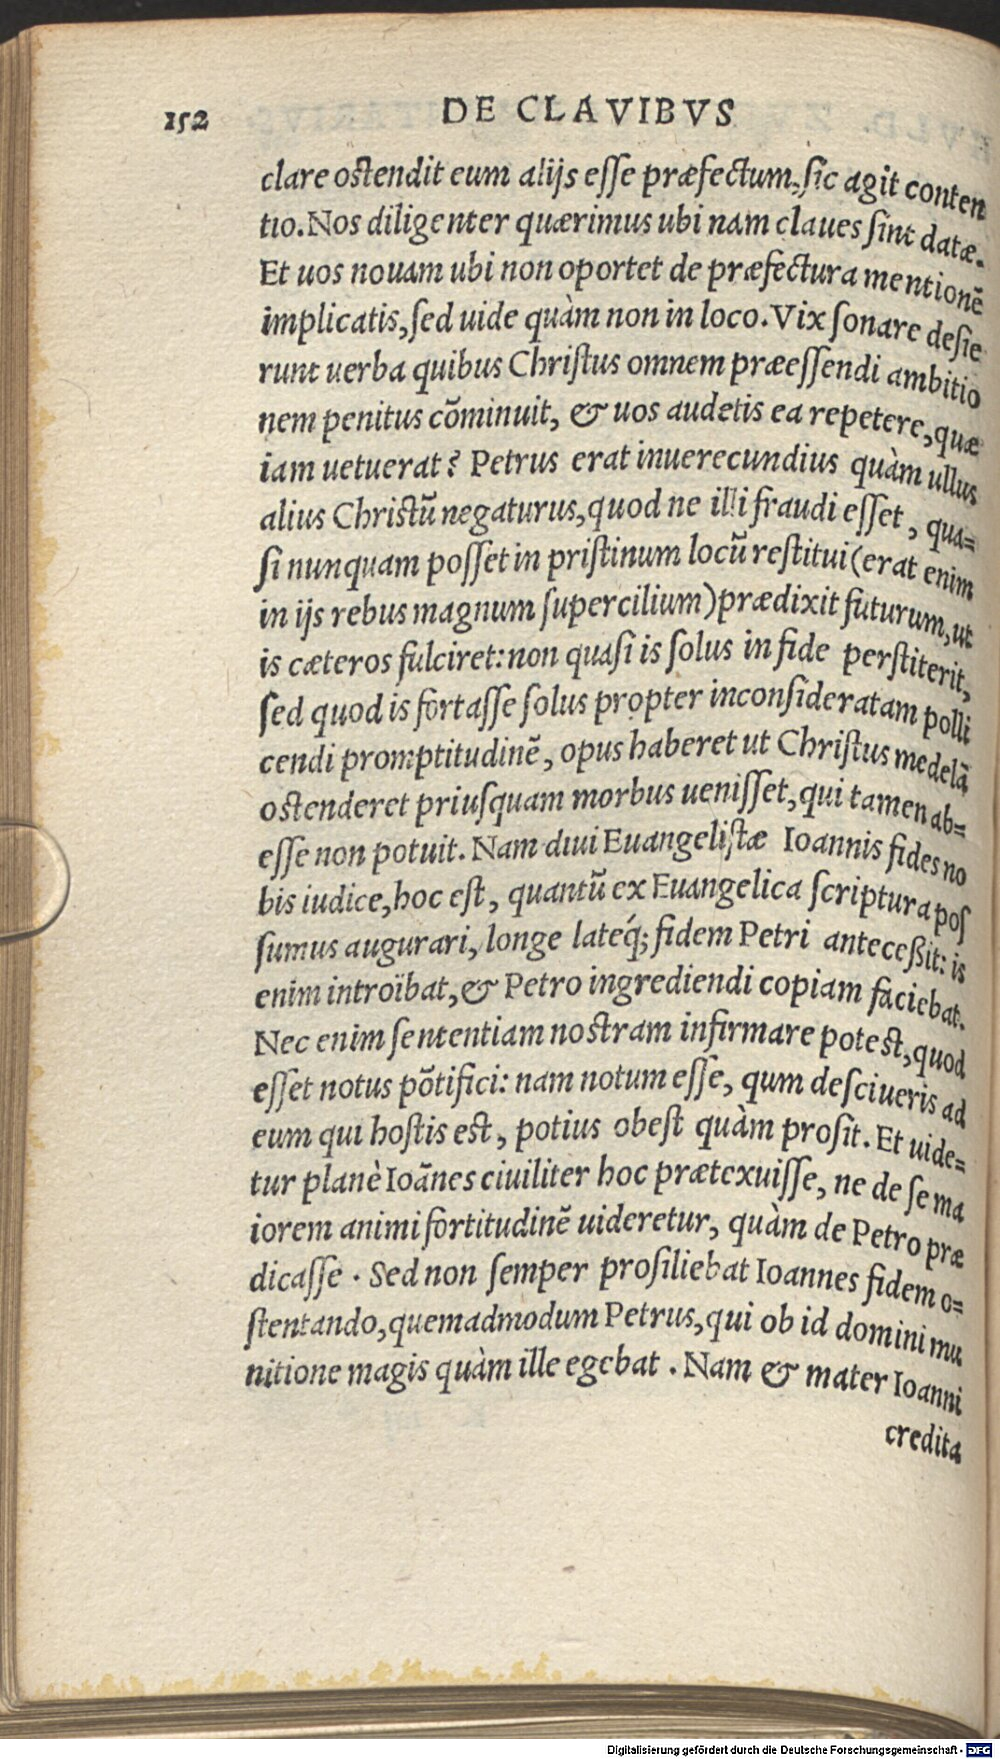 152 DE CLAVIBVS
clare ostendit eum alijs esse præfectum, sic agit conten
tio. Nos diligenter quærimus ubi nam claues sint datæ.
Et uos nouam ubi non oportet de præfectura mentionē
implicatis, sed uide quàm non in loco. Vix sonare desie
runt uerba quibus Christus omnem præessendi ambitio
nem penitus cōminuit, & uos audetis ea repetere, quæ
iam uetuerat? Petrus erat inuerecundius quàm ullus
alius Christū negaturus, quod ne illi fraudi esset, qua=
si nunquam posset in pristinum locū restitui (erat enim
in ijs rebus magnum supercilium) prædixit futurum, ut
is cæteros fulciret: non quasi is solus in fide perstiterit,
sed quod is fortasse solus propter inconsideratam polli
cendi promptitudinē, opus haberet ut Christus medelā
ostenderet priusquam morbus uenisset, qui tamen ab=
esse non potuit. Nam diui Euangelistæ Ioannis fides no
bis iudice, hoc est, quantū ex Euangelica scriptura pos
sumus augurari, longe lateq́; fidem Petri anteceßit: is
enim introïbat, & Petro ingrediendi copiam faciebat.
Nec enim sententiam nostram infirmare potest, quod
esset notus pōtifici: nam notum esse, qum desciueris ad
eum qui hostis est, potius obest quàm prosit. Et uide=
tur planè Ioānes ciuiliter hoc prætexuisse, ne de se ma
iorem animi fortitudinē uideretur, quàm de Petro præ
dicasse. Sed non semper prosiliebat Ioannes fidem o=
stentando, quemadmodum Petrus, qui ob id domini mu
nitione magis quàm ille egebat. Nam & mater Ioanni
credita
Digitalisierung gefördert durch die Deutsche Forschungsgemeinschaft - DFG